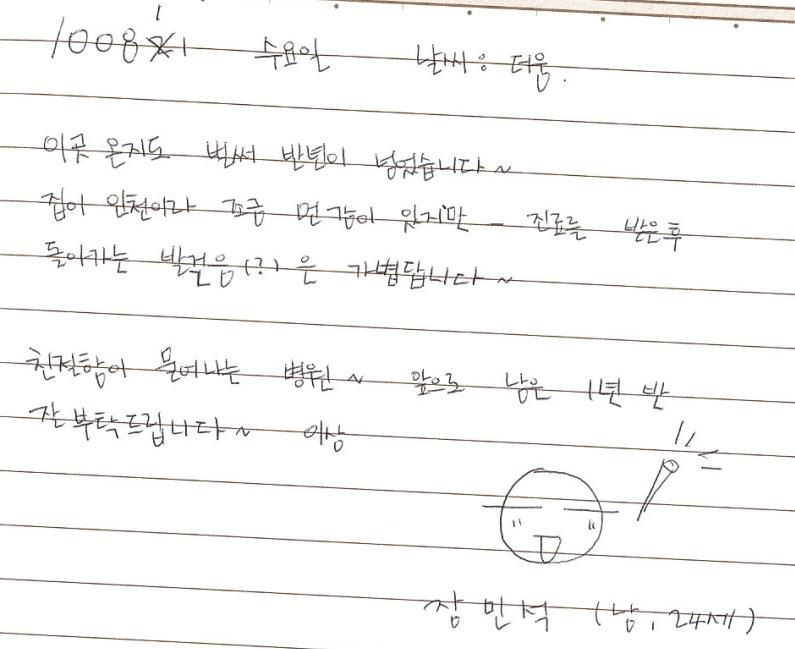 100811 수요일 날씨: 더움.
이곳 온지도 벌써 반년이 넘었습니다~
집이 인천이라 조금 먼감이 있지만 - 진료를 받은후
돌아가는 발걸음(?)은 가볍답니다~
친절함이 묻어나는 병원~ 앞으로 남은 1년 반
잘 부탁드립니다~ 이상
장민석 (남, 24세)